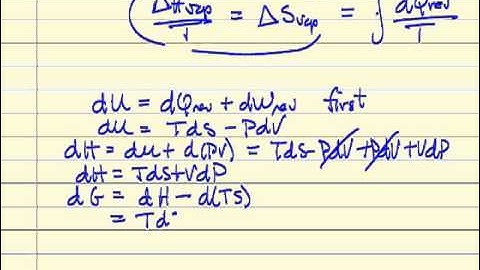 ΔHvap/T = ΔSvap = ∫ dQrev/T
dU = dQrev + dWrev first
dU = TdS - PdV
dH = dU + d(PV) = TdS - PdV + PdV + VdP
dH = TdS + VdP
dG = dH - d(TS)
= Td